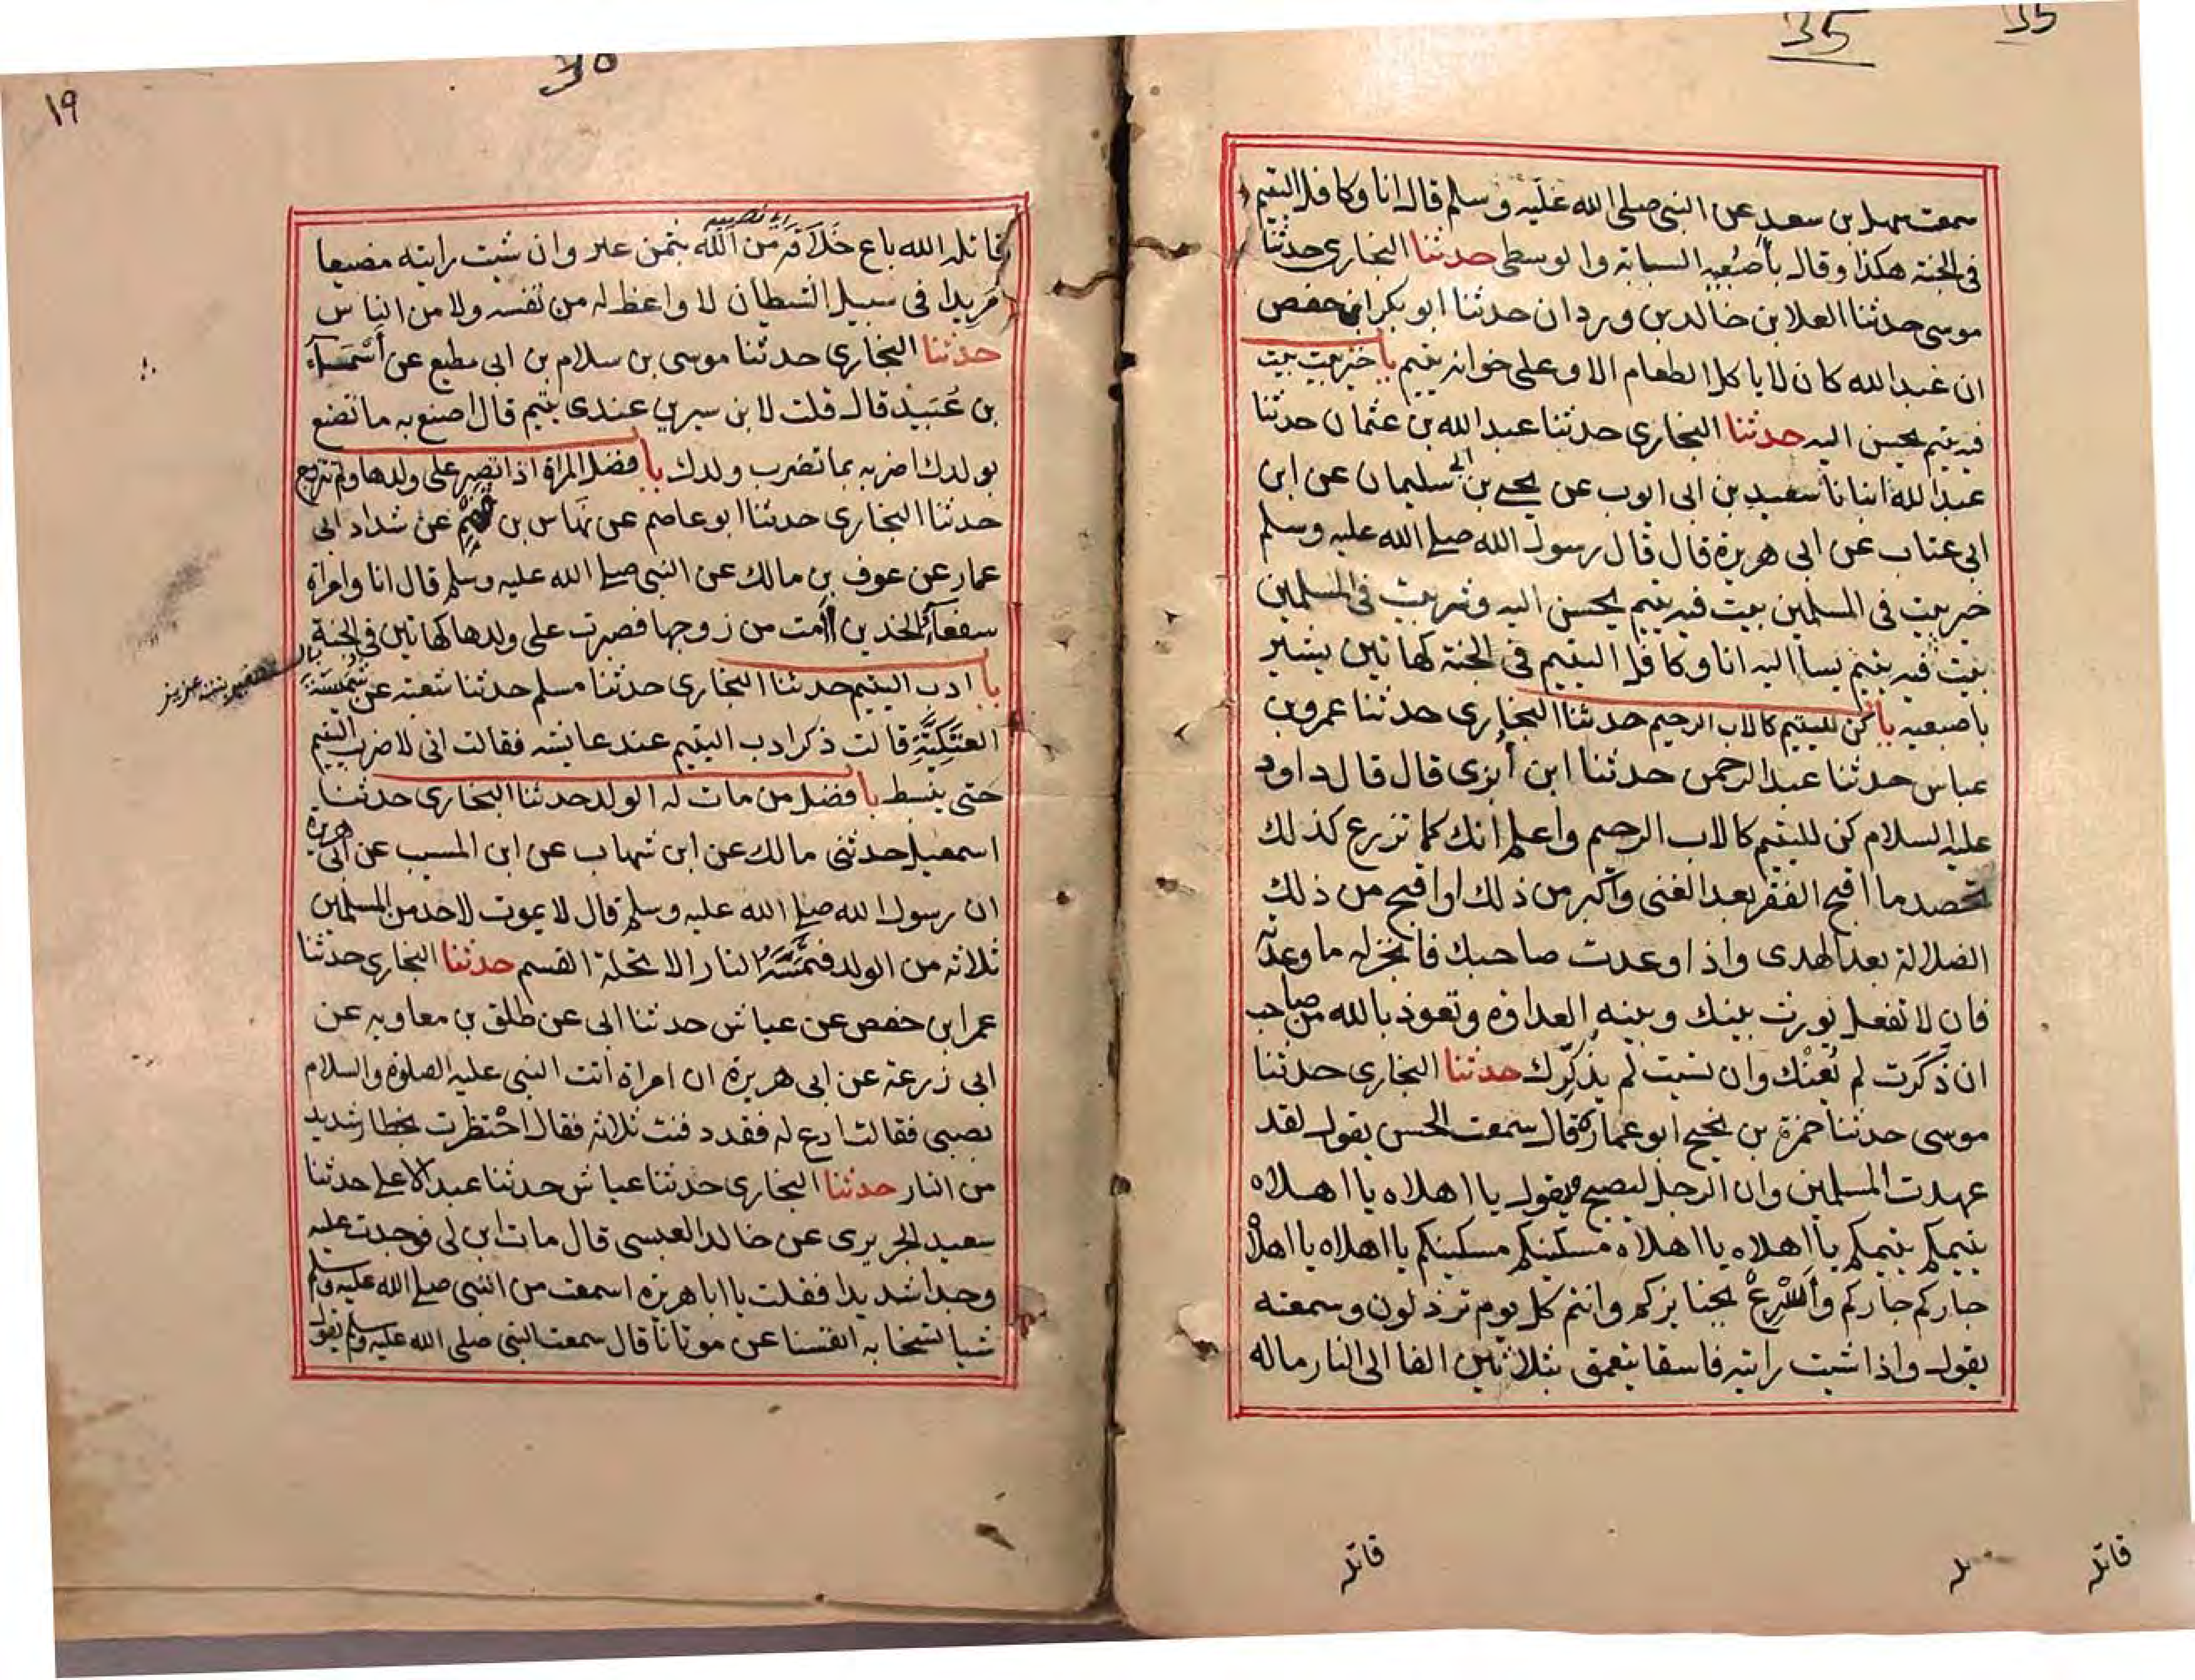 35
35
سمعت سهل بن سعد عن النبي صلى الله عليه وسلم قال انا وكافل اليتيم
فى الجنة هكذا وقال باصبعيه السبابة والوسطى حدثنا البخارى حدثنا
موسى حدثنا العلا بن خالد بن وردان حدثنا ابو بكر ابن حفص
ان عبد الله كان لا ياكل الطعام الا وعلى خوانه يتيم با خير بيت بيت
فيه يتيم يحسن اليه حدثنا البخارى حدثنا عبد الله بن عثمان حدثنا
عبد الله انبانا سعيد بن ابى ايوب عن يحيى بن ابى سليمان عن ابن
ابى عتاب عن ابى هريرة قال قال رسول الله صلى الله عليه وسلم
خير بيت فى المسلمين بيت فيه يتيم يحسن اليه وشر بيت فى المسلمين
بيت فيه يتيم يساا اليه انا وكافل اليتيم فى الجنة كهاتين يشير
باصبعيه با كن لليتيم كالاب الرحيم حدثنا البخارى حدثنا عمرو بن
عباس حدثنا عبد الرحمن حدثنا ابن أبزى قال قال داود
عليه السلام كن لليتيم كالاب الرحيم واعلم أنك كما تزرع كذلك
تحصد ما اقبح الفقر بعد الغنى واكبر من ذلك او اقبح من ذلك
الضلالة بعد الهدى واذا وعدت صاحبك فانجز له ما وعدته
فان لا تفعل يورث بينك وبينه العداوة وتعوذ بالله من صاحب
ان ذَكَرت لم يُعنْك وان نسيت لم يذكِّرك حدثنا البخارى حدثنا
موسى حدثنا حمزة بن نجيح ابو عمارة قال سمعت الحسن يقول لقد
عهدت المسلمين وان الرجل ليصبح فيقول يا اهلاه يا اهلاه
يتيمكم يتيمكم يا اهلاه يا اهلاه مسكينكم مسكينكم يا اهلاه يا اهلاه
جاركم جاركم وأسْرِعْ بخياركم وانتم كل يوم ترذلون وسمعته
يقول واذا شيت رايته فاسقا يتعمق بثلاثين الفا الى النار ماله
قاتله
قاتله
١٩
قاتله الله باع خَلَاقَه مِن الله بثمن عنز وان شيت رايته مضيعا
مريدا فى سبيل الشيطان لا واعظ له من نفسه ولا من الناس
حدثنا البخارى حدثنا موسى بن سلام بن ابى مطيع عن أسْمَاء
بن عُبَيْد قال قلت لابن سيرين عندى يتيم قال اصنع به ما تصنع
بولدك اضربه بما تضرب ولدك با فضل المراة اذا تصبر على ولدها ولم تتزوج
حدثنا البخارى حدثنا ابو عاصم عن نَهاس بن قهم عن شداد ابى
عمار عن عوف بن مالك عن النبي صلى الله عليه وسلم قال انا وامراة
سفعآء الخدين اامت من زوجها فصبرت على ولدها كهاتين فى الجنة
با ادب اليتيم حدثنا البخارى حدثنا مسلم حدثنا شعبه عن شُمَيْسَةَ
العَتَكِيَّة قالت ذكر ادب اليتيم عند عايشه فقالت انى لاضرب اليتيم
حتى ينبسط با فضل من مات له الولد حدثنا البخارى حدثنا
اسمعيل حدثنى مالك عن ابن شهاب عن ابن المسيب عن ابى هريرة
ان رسول الله صلى الله عليه وسلم قال لا يموت لاحد من المسلمين
ثلاثه من الولد فتمَسَّهُ النار الا تحلة القسم حدثنا البخارى حدثنا
عمر ابن حفص عن عياش حدثنا ابى عن طلق بن معاويه عن
ابى زرعة عن ابى هريرة ان امراة اتت النبي عليه الصلوة والسلام
بصبى فقالت ادع له فقد دفنت ثلاثه فقال احْتظرت بحظار شديد
من النار حدثنا البخارى حدثنا عياش حدثنا عبد الاعلى حدثنا
سعيد الجريرى عن خالد العبسى قال مات ابن لى فوجدت عليه
وجدا شديدا فقلت يا ابا هريره اسمعت من النبي صلى الله عليه وسلم
شيا تسخا به انفسنا عن موتانا قال سمعت النبي صلى الله عليه وسلم يقول